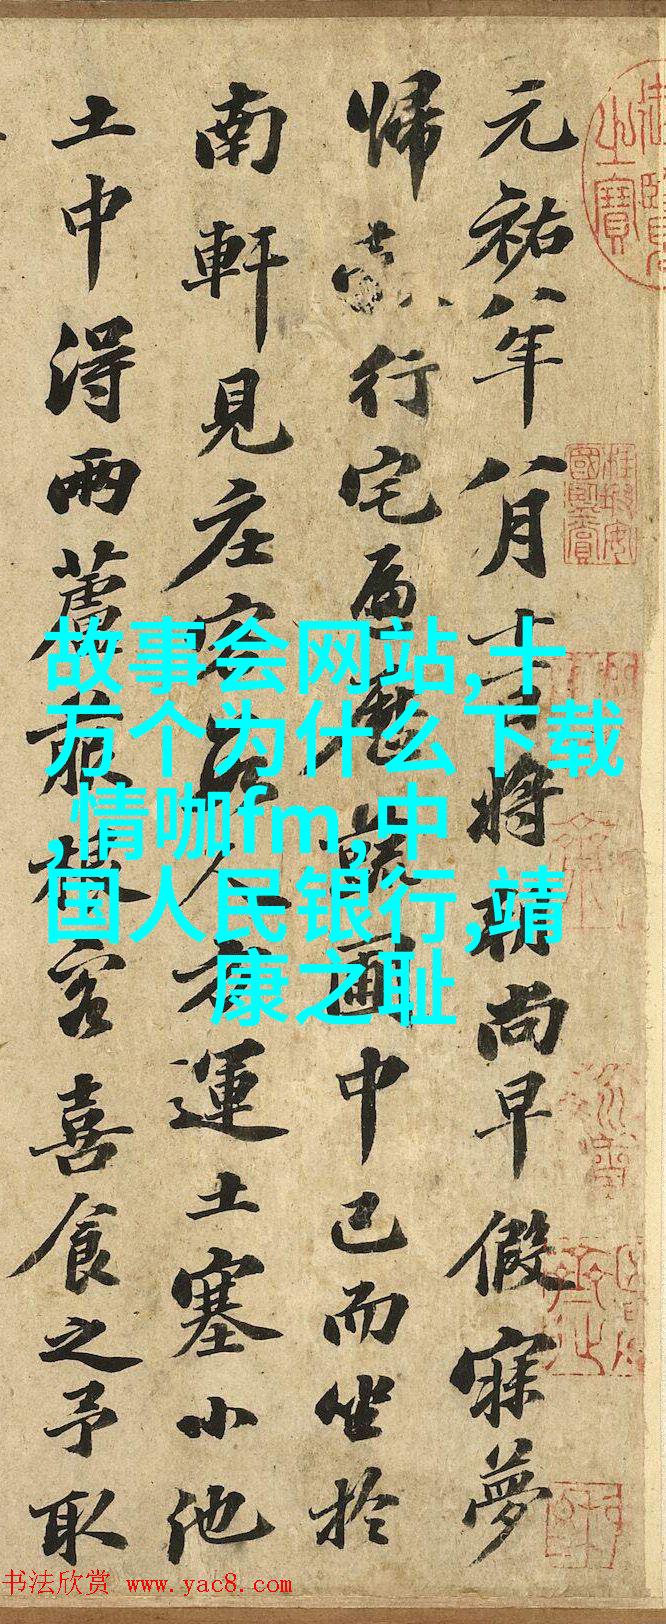 元祐八年八月十一日將朝尚早假寐夢
歸行宅遍歷蔬圃中已而坐於
南軒見庄客人方運土塞小池
土中得兩蘆菔根客喜食之予取
故事会网站,十
万个为什么下载
,情咖fm,中
国人民银行,靖
康之耻
书法欣赏 www.yac8.com